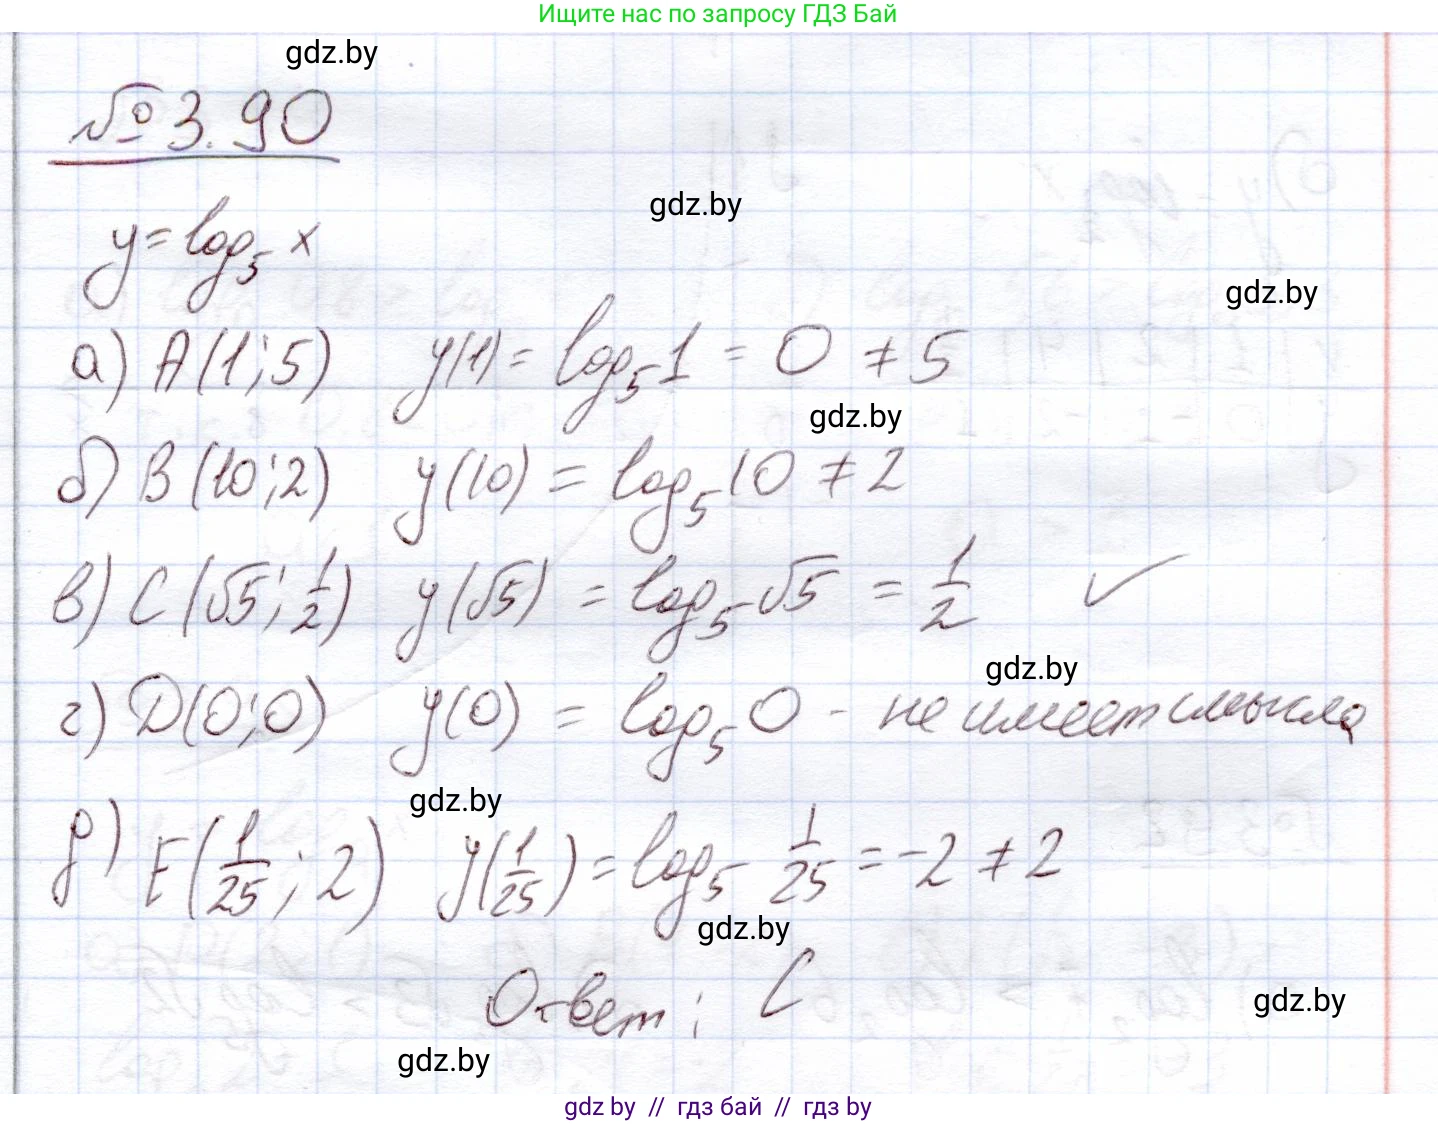 Ищите нас по запросу ГДЗ Бай
gdz.by
№ 3.90
gdz.by
y = log₅ x
gdz.by
а) A(1; 5) y(1) = log₅ 1 = 0 ≠ 5
gdz.by
б) B(10; 2) y(10) = log₅ 10 ≠ 2
в) C(√5; 1/2) y(√5) = log₅ √5 = 1/2 ✓
gdz.by
г) D(0; 0) y(0) = log₅ 0 - не имеет смысла
gdz.by
д) E(1/25; 2) y(1/25) = log₅ 1/25 = -2 ≠ 2
gdz.by
Ответ: C
gdz.by
gdz.by
gdz by // гдз бай // гдз by